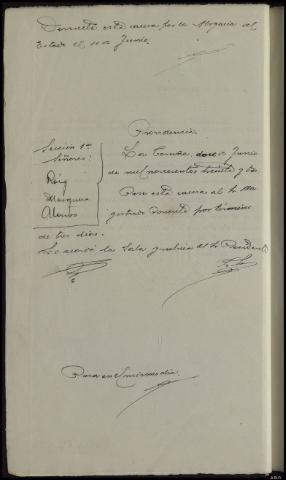 Devuelta esta causa por la Abogacia del
Estado el 10 de Junio.
Providencia
Sección 1ª
Señores:
Roig
Mosquera
Alonso
La Coruña, doce de Junio
de mil novecientos treinta y
Pase esta causa al Sr. Ma
gistrado Ponente por término
de tres dias.
Lo acordó la Sala y rubrica el Sr. Presidente
Pasa en el mismo dia.